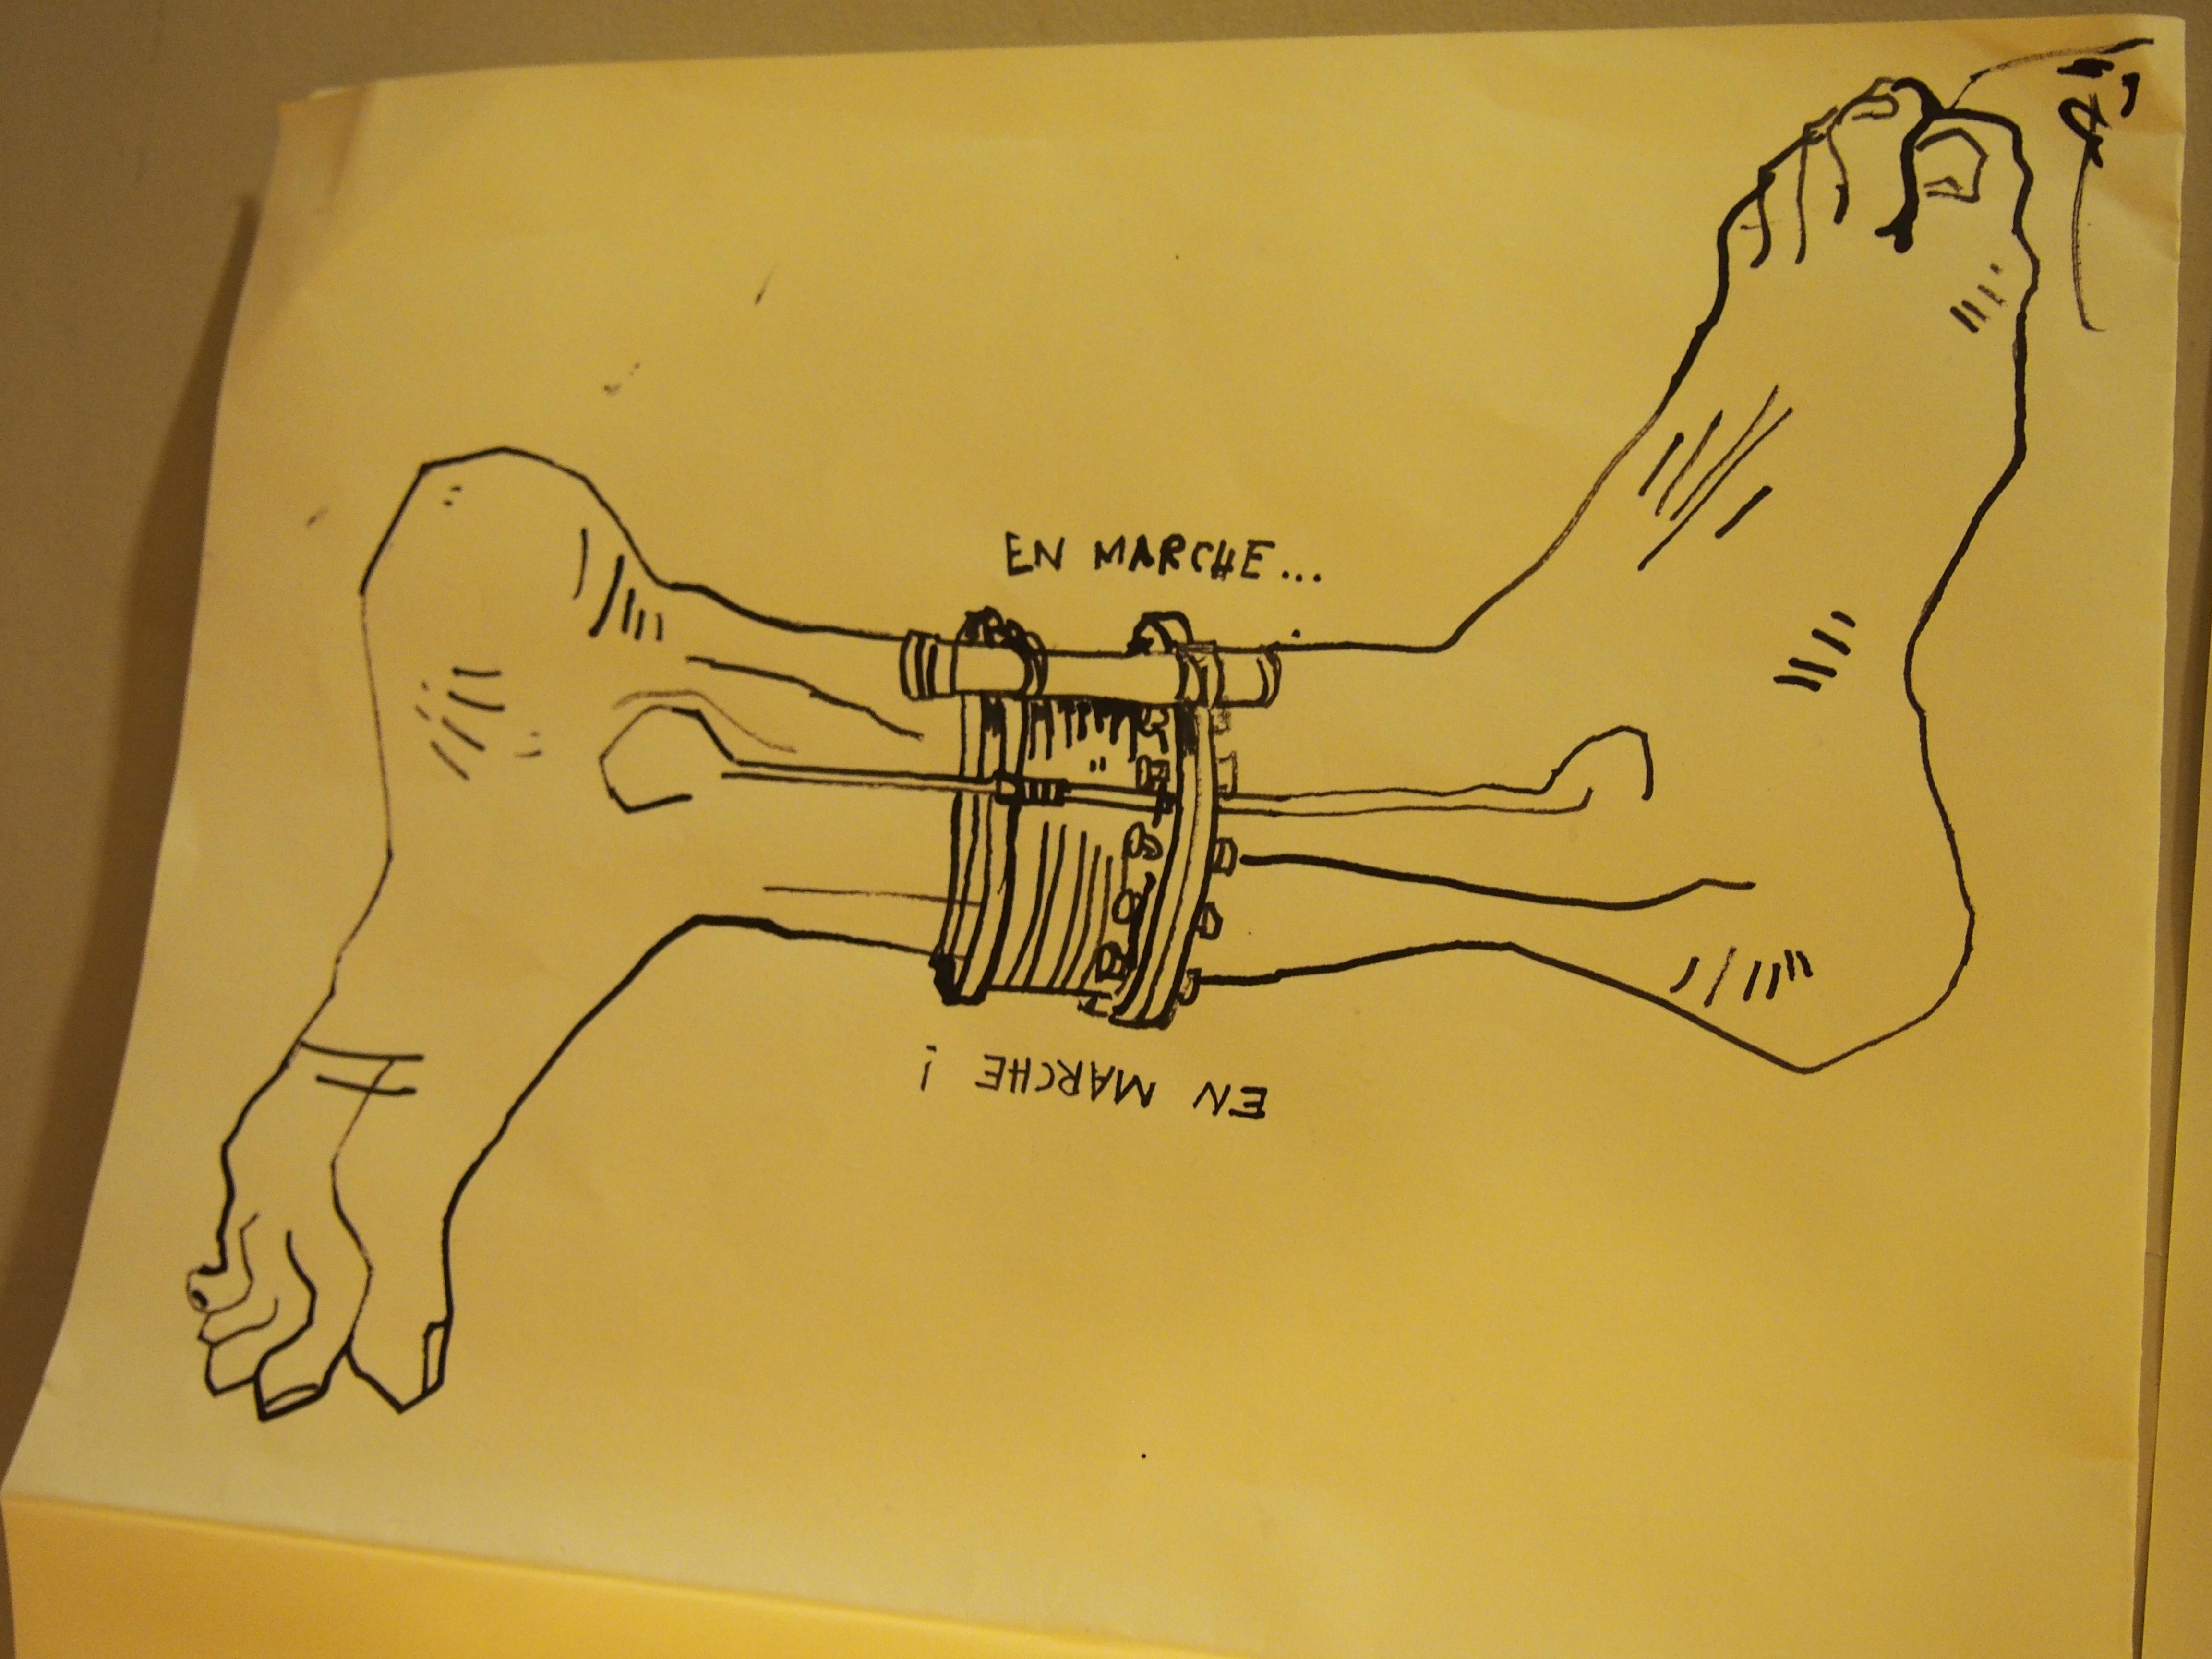 EN MARCHE...
EN MARCHE !